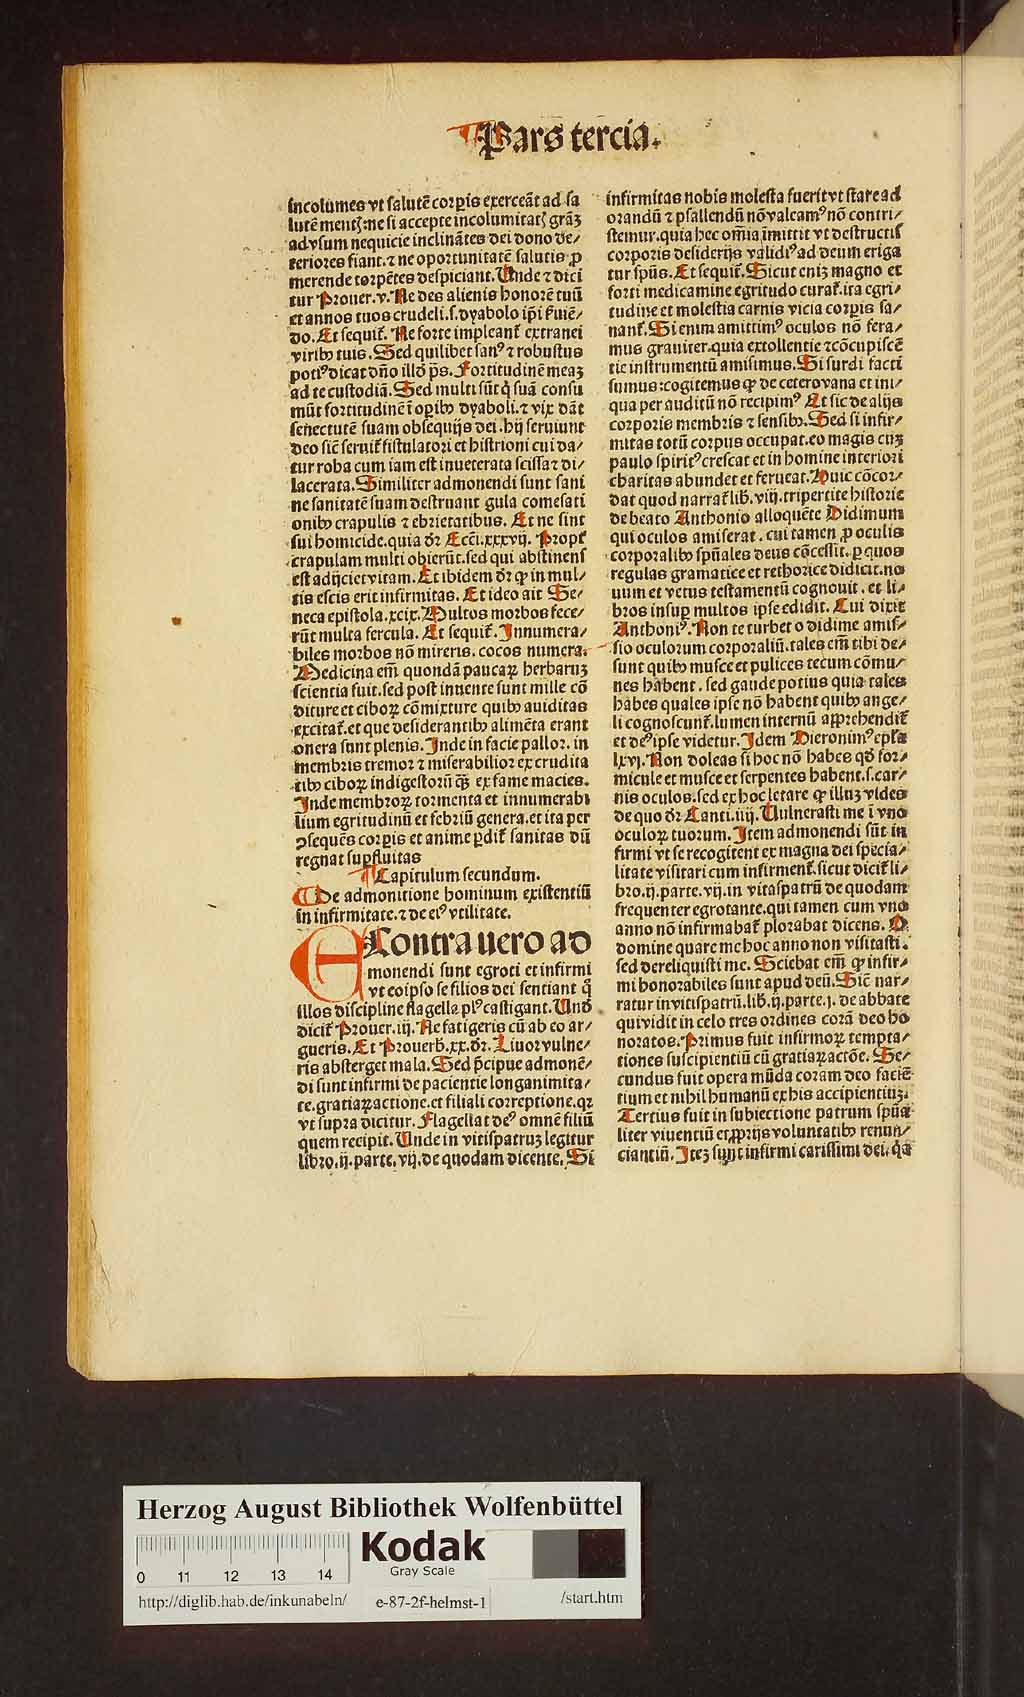 Pars tercia.
incolumes vt salutē corpis exerceāt ad sa
lutē mentꝫ: ne si accepte incolumitatꝫ grāꝫ
ad vsum nequicie inclinātes dei dono de⸗
teriores fiant. ⁊ ne oportunitatē salutis ꝓ
merende torpētes despiciant. Unde ⁊ dici
tur Prouer. v. Ne des alienis honorē tuū
et annos tuos crudeli. s. dyabolo ip̄i ẜuiē⸗
do. Et sequit̄. Ne forte impleant̄ extranei
viribꝰ tuis. Sed quilibet sanꝰ ⁊ robustus
potiꝰ dicat dn̄o illḋ ps̄. Fortitudinē meaꝫ
ad te custodiā. Sed multi sūt q̇ suā consu
mūt fortitudinē ī opibꝰ dyaboli. ⁊ vix dāt
senectutē suam obsequijs dei. hij seruiunt
deo sic̄ seruit̄ fistulatori et histrioni cui da⸗
tur roba cum iam est inueterata scissa ⁊ di⸗
lacerata. Similiter admonendi sunt sani
ne sanitatē suam destruant gula comesati
onibꝰ crapulis ⁊ ebrietatibus. Et ne sint
sui homicide. quia dr̄ Ecc̄i. xxxvij. Propt̄
crapulam multi obierūt. sed qui abstinens
est adijciet vitam. Et ibidem dr̄ ꝙ in mul⸗
tis escis erit infirmitas. Et ideo ait Se⸗
neca epistola. xcix. Multos morbos fece⸗
rūt multa fercula. Et sequit̄. Innumera⸗
biles morbos nō mireris. cocos numera.
Medicina em̄ quondā paucaꝝ herbaruꝫ
scientia fuit. sed post inuente sunt mille cō
diture et ciboꝝ cōmixture quibꝰ auiditas
excitat̄. et que desiderantibꝰ alimēta erant
onera sunt plenis. Inde in facie pallor. in
membris tremor ⁊ miserabilior ex crudita
tibꝰ ciboꝝ indigestorū q̄ꝫ ex fame macies.
Inde membroꝝ tormenta et innumerabi
lium egritudinū et febriū genera. et ita per
ꝯsequēs corpis et anime ꝑdit̄ sanitas dū
regnat supfluitas
Capitulum secundum.
De admonitione hominum existentiū
in infirmitate. ⁊ de eiꝰ vtilitate.
E Contra uero ad
monendi sunt egroti et infirmi
vt eo ipso se filios dei sentiant q̇
illos discipline flagella plꝰ castigant. Unḋ
dicit̄ Prouer. iij. Ne fatigeris cū ab eo ar⸗
gueris. Et Prouerb̄. xx. dr̄. Liuor vulne⸗
ris absterget mala. Sed p̄cipue admonē⸗
di sunt infirmi de pacientie longanimita⸗
te. gratiaꝝ actione. et filiali correptione. qꝛ
vt supra dicitur. Flagellat deꝰ omnē filiū
quem recipit. Unde in vitispatruꝫ legitur
libro. ij. parte. vij. de quodam dicente. Si
infirmitas nobis molesta fuerit vt stare ad
orandū ⁊ psallendū nō valeamꝰ nō contri⸗
stemur. quia hec om̄ia īmittit vt destructis
corporis desiderijs validiꝰ ad deum eriga
tur sp̄us. Et sequit̄. Sicut eniꝫ magno et
forti medicamine egritudo curat̄. ita egri⸗
tudine et molestia carnis vicia corpis sa⸗
nant̄. Si enim amittimꝰ oculos nō fera⸗
mus grauiter. quia extollentie ⁊ cōcupiscē
tie instrumentū amisimus. Si surdi facti
sumus: cogitemus ꝙ de cetero vana et ini⸗
qua per auditū nō recipimꝰ. Et sic de alijs
corporis membris ⁊ sensibꝰ. Sed si infir⸗
mitas totū corpus occupat. eo magis cuꝫ
paulo spiritꝰ crescat et in homine interiori
charitas abundet et ferueat. Huic cōcor⸗
dat quod narrat̄ lib. viij. tripertite historie
de beato Anthonio alloquēte Didimum
qui oculos amiserat. cui tamen ꝓ oculis
corporalibꝰ spūales deus cōcessit. ꝑ quos
regulas gramatice et rethorice didicit. no
uum et vetus testamentū cognouit. et li⸗
bros insup multos ipse edidit. Cui dixit
Anthoniꝰ. Non te turbet o didime amis⸗
sio oculorum corporaliū. tales em̄ tibi de⸗
sunt quibꝰ musce et pulices tecum cōmu⸗
nes habent. sed gaude potius quia tales
habes quales ipse nō habent quibꝰ ange⸗
li cognoscunt̄. lumen internū apprehendit̄
et deꝰ ipse videtur. Idem Hieronimꝰ epl̄a
lxvj. Non doleas si hoc nō habes qḋ for⸗
micule et musce et serpentes habent. s. car⸗
nis oculos. sed ex hoc letare ꝙ illuꝫ vides
de quo dr̄ Canti. iiij. Vulnerasti me ī vno
oculoꝝ tuorum. Item admonendi sūt in
firmi vt se recogitent ex magna dei specia⸗
litate visitari cum infirment̄. sicut dicit̄ li⸗
bro. ij. parte. vij. in vitaspatrū de quodam
frequenter egrotante. qui tamen cum vno
anno nō infirmabat̄ plorabat dicens. O
domine quare me hoc anno non visitasti.
sed dereliquisti me. Sciebat em̄ ꝙ infir⸗
mi honorabiles sunt apud deū. Sic̄ nar⸗
ratur in vitispatrū. lib. ij. parte. j. de abbate
qui vidit in celo tres ordines corā deo ho
noratos. Primus fuit infirmoꝝ tempta⸗
tiones suscipientiū cū gratiaꝝ actōe. Se⸗
cundus fuit opera mūda coram deo faciē
tium et nihil humanū ex his accipientiuꝫ.
Tertius fuit in subiectione patrum spūa
liter viuentiū et ꝓprijs voluntatibꝰ renun⸗
ciantiū. Iteꝫ sunt infirmi carissimi dei. q̄a
Herzog August Bibliothek Wolfenbüttel
Kodak
Gray Scale
0 11 12 13 14
http://diglib.hab.de/inkunabeln/ e-87-2f-helmst-1 /start.htm